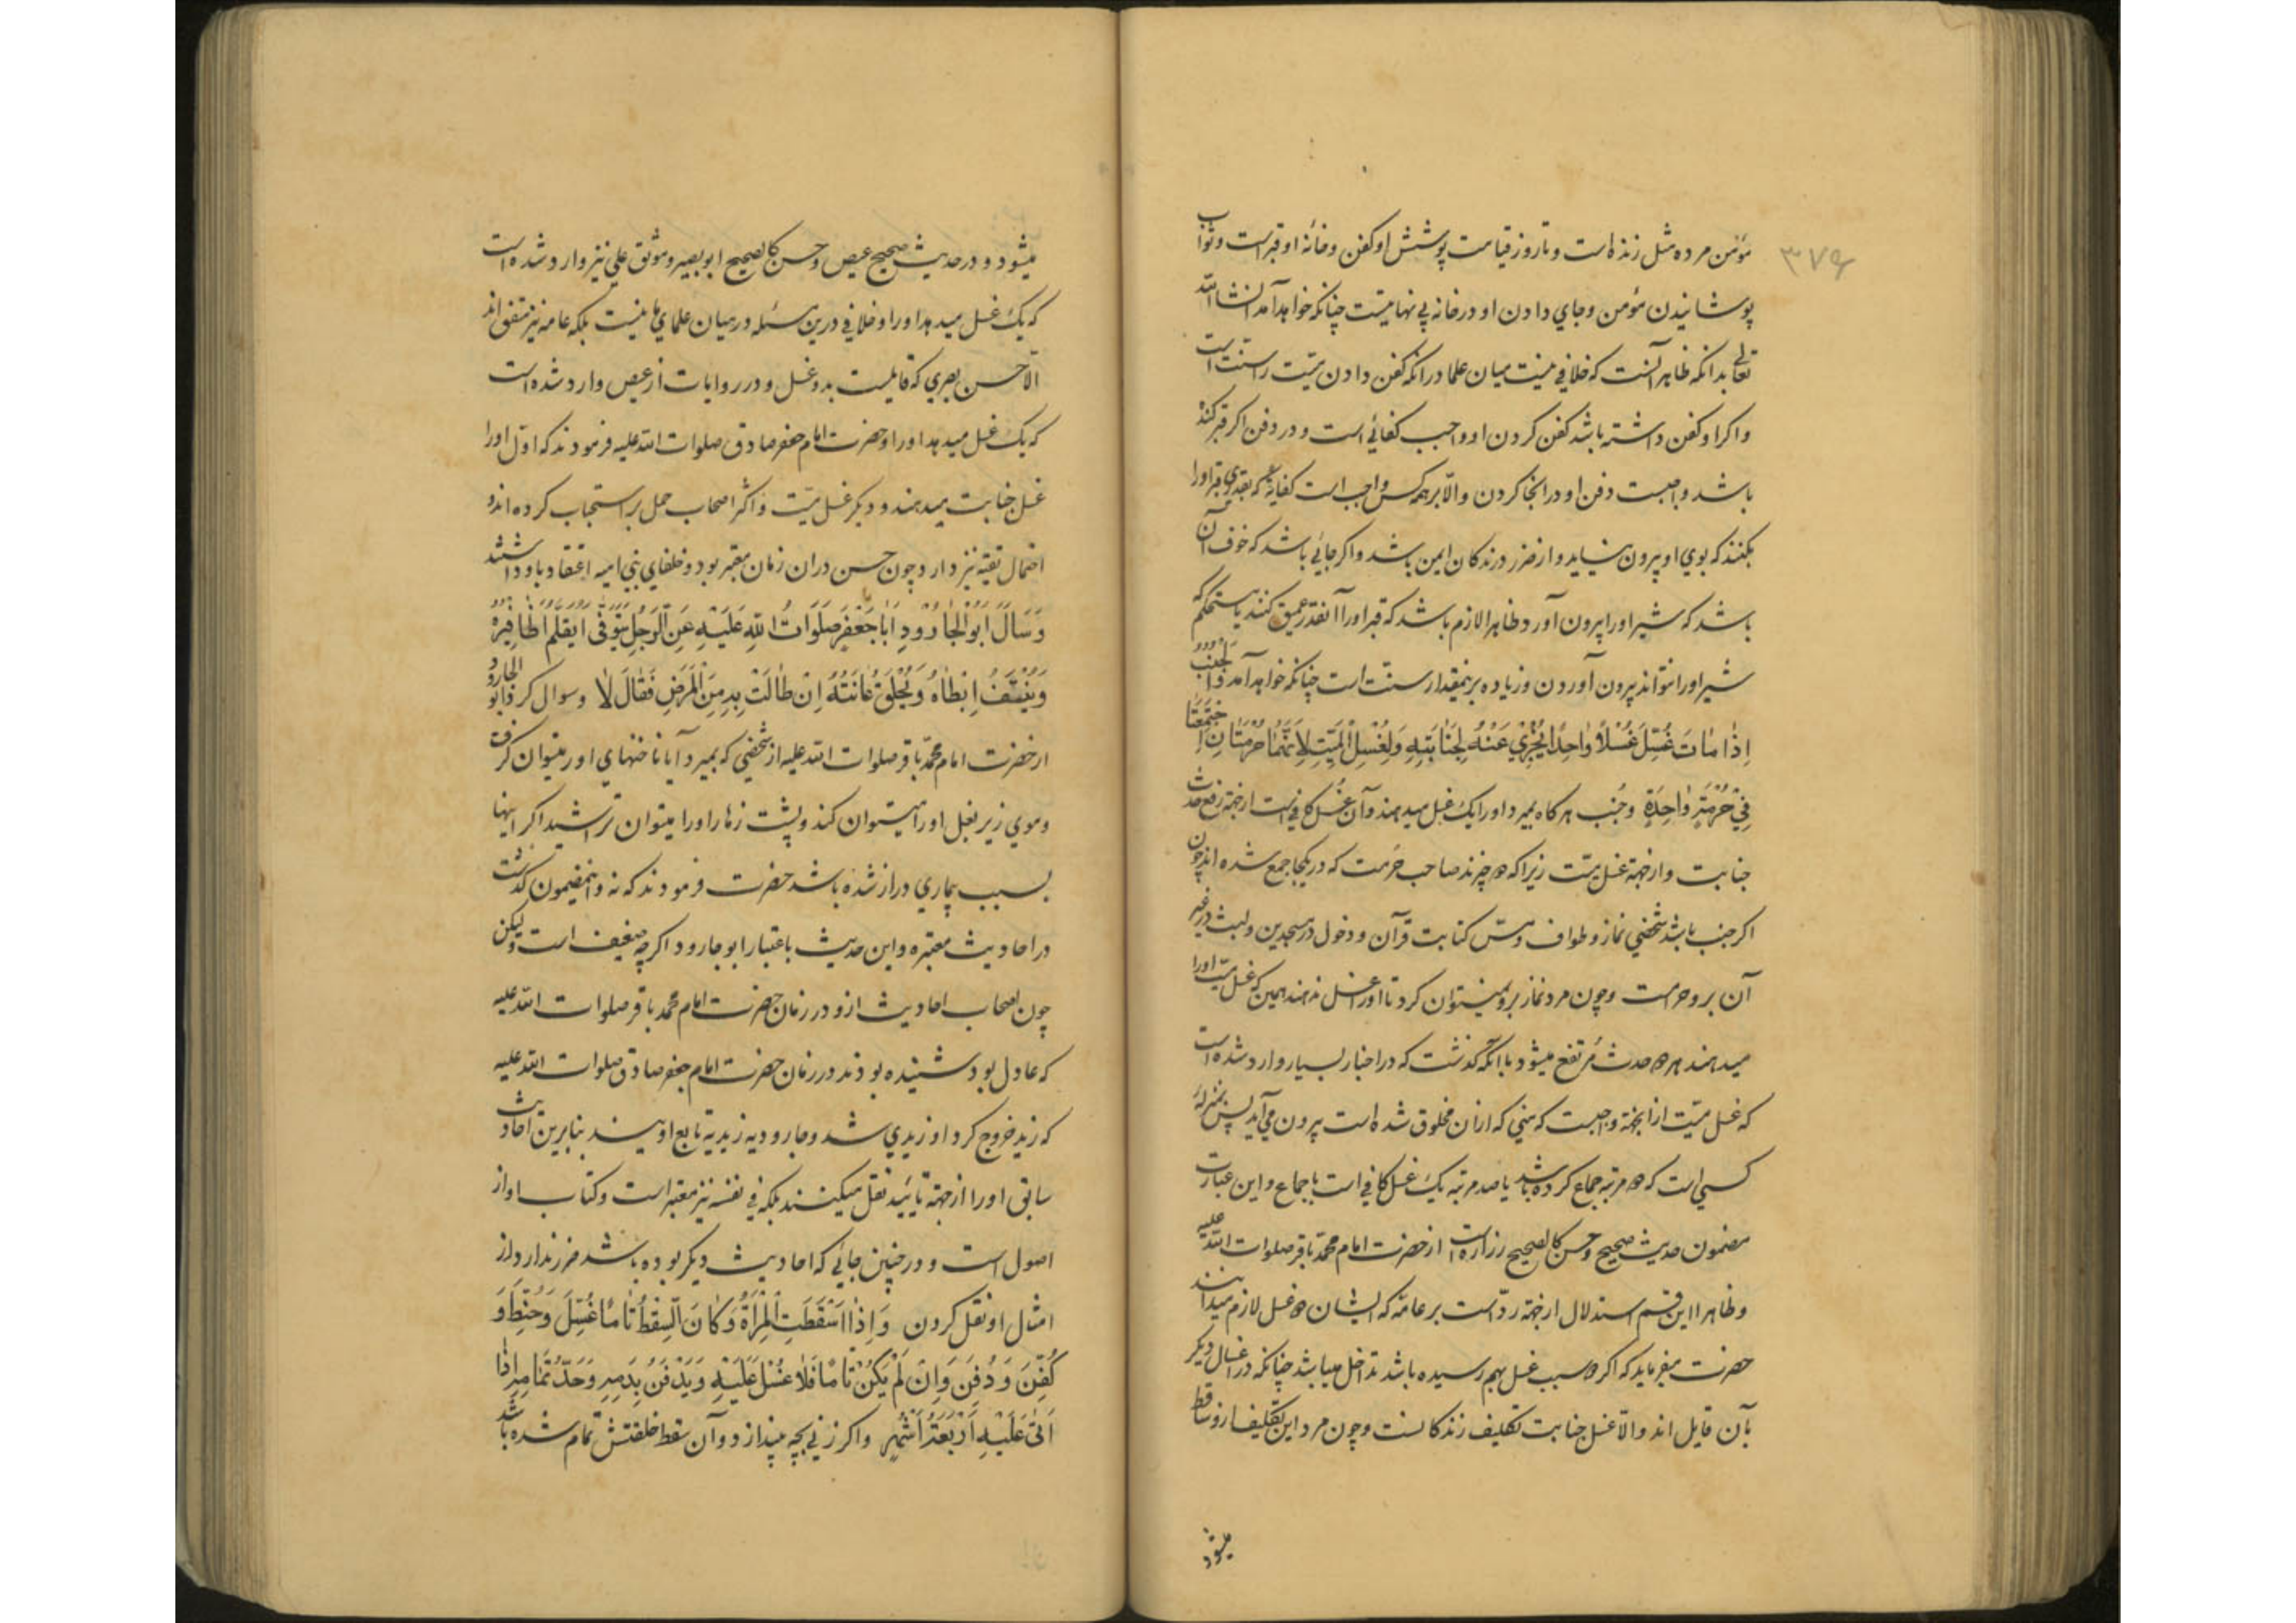 ۳۷۶
مؤمن مرده مثل زنده است و تا روز قیامت پوشش او کفن و خانۀ او قبر است و ثواب
پوشانیدن مؤمن و جاي دادن او در خانه بی نهایتست چنانکه خواهد آمد انشاالله
تعالی بدانکه ظاهر آنست که خلافی نیست میان علما در آنکه کفن دادن میّت را سنّت است
و اکر او کفن داشته باشد کفن کردن او واجب کفائی است و در دفن اکر قبر کنده
باشد واجبست دفن او در انجا کردن و الّا بر همه کس واجب است کفایة که بقدری قبر او را
بکنند که بوي او بیرون نیاید و از ضرر درندکان ایمن باشد و اکر جائی باشد که خوف آن
باشد که شیر او را بیرون آورد ظاهرا لازم باشد که قبر او را آنقدر عمیق کنند یا مستحکم که
شیر او را نتواند بیرون آوردن و زیاده بر ینمقدار سنت است چنانکه خواهد آمد وَالْجُنُبُ
اِذٰا مٰاتَ غُسِّلَ غُسْلًا وٰاحِدًا یُجْزِیْ عَنْهُ لِجَنٰابَتِهِ وَلِغُسْلِ الْمَیِّتِ لِاَنَّهُمٰا حُرْمَتٰانِ اِجْتَمَعَتٰا
فِیْ حُرْمَةٍ وٰاحِدَةٍ و جُنُب هرکاه بمیرد او را یک غسل میدهند و آن غُسل کافی است از جهة رفع حدث
جنابت و از جهة غسل میّت زیرا که دو چیزند صاحب حرمت که در یکجا جمع شده اند چون
اکر جنب باشد شخصي نماز و طواف و مسّ کتابت قرآن و دخول در مسجدین و لبث در غیر
آن بر و حرامست و چون مرد نماز برو نمیتوان کرد تا او را غسل ندهند همین که غسل میّت او را
میدهند هر دو حدث مُرتفع میشود با آنکه کذشت که در اخبار بسیار وارد شده است
که غسل میّت از آنجهة واجبست که منی که از ان مخلوق شده است بیرون می آید پس بمنزلۀ
کسي است که دو مرتبه جماع کرده باشد یا صد مرتبه یک غسل کافی است باجماع و این عبارت
مضمون حدیث صحیح و حسن کالصحیح زراره است از حضرت امام محمّد باقر صلوات الله علیه
و ظاهرا این قسم استدلال از جهة ردّ است بر عامّه که ایشان دو غسل لازم میدانند
حضرت میفرماید که اکر دو سبب غسل بهم رسیده باشد تداخل میباشد چنانکه در اغسال دیکر
بآن قایل اند و الّا غسل جنابت تکلیف زندکانست و چون مرد این تکلیف ازو ساقط
میشود
میشود و در حدیث صحیح عیص و حسن کالصحیح ابو بصیر و موثق علي نیز وارد شده است
که یک غسل میدهد او را و خلافی درین مسئله در میان علماي ما نیست بلکه عامه نیز متفق اند
الّا حسن بصري که قایلست بدو غسل و در روایات از عیص وارد شده است
که یک غسل میدهد او را و حضرت امام جعفر صادق صلوات الله علیه فرمودند که اوّل او را
غسل جنابت میدهند و دیکر غسل میّت و اکثر اصحاب حمل بر استحباب کرده اند و
احتمال تقیه نیز دارد چون حسن دران زمان معتبر بود و خلفاي بني امیه اعتقاد باو داشتند
وَسَأَلَ اَبُوْالْجٰارُوْدِ اَبٰا جَعْفَرٍ صَلَوٰاتُ اللهِ عَلَیْهِ عَنِ الرَّجُلِ یُتَوَفّٰی اَیُقَلَّمُ اَظٰافِیْرُهُ
وَیُنْتَفُ اِبْطٰاهُ وَیُحْلَقُ عٰانَتُهُ اِنْ طٰالَتْ بِهِ مِنَ الْمَرَضِ فَقٰالَ لٰا و سوال کرد ابو الجارود
از حضرت امام محمّد باقر صلوات الله علیه از شخصي که بمیرد آیا ناخنهاي او را میتوان کرفت
و موي زیر بغل او را میتوان کند و پشت زهار او را میتوان تراشید اکر اینها
بسبب بیماري دراز شده باشد حضرت فرمودند که نه و اینمضمون کذشت
در احادیث معتبره و این حدیث باعتبار ابو جارود اکرچه ضعیف است ولیکن
چون اصحاب احادیث ازو در زمان حضرت امام محمد باقر صلوات الله علیه
که عادل بود شنیده بودند و در زمان حضرت امام جعفر صادق صلوات الله علیه
که زید خروج کرد او زیدي شد و جارودیه زیدیه تابع اویند بنابرین احادیث
سابق او را از جهة تایید نقل میکنند بلکه فی نفسه نیز معتبر است و کتاب او از
اصول است و در چنین جائي که احادیث دیکر بوده باشد ضرر ندارد از
امثال او نقل کردن وَاِذٰا اَسْقَطَتِ الْمَرْأَةُ وَکٰانَ السِّقْطُ تٰامًّا غُسِّلَ وَحُنِّطَ وَ
کُفِّنَ وَدُفِنَ وَاِنْ لَمْ یَکُنْ تٰامًّا فَلٰا غُسْلَ عَلَیْهِ وَیُدْفَنُ بِدَمِهِ وَحَدُّ تَمٰامِهِ اِذٰا
اَتٰی عَلَیْهِ اَرْبَعَةُ اَشْهُرٍ و اکر زني بچه بیندازد و آن سقط خلقتش تمام شده باشد